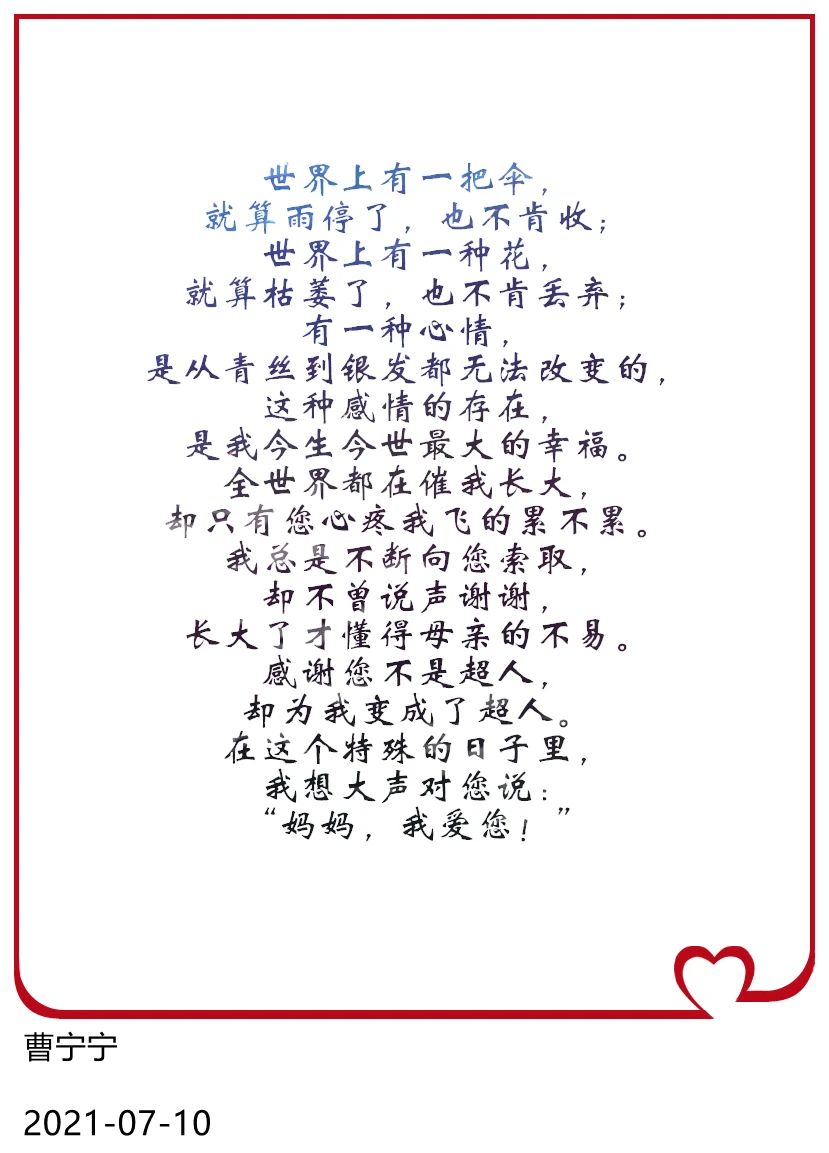 世界上有一把伞，
就算雨停了，也不肯收；
世界上有一种花，
就算枯萎了，也不肯丢弃；
有一种心情，
是从青丝到银发都无法改变的，
这种感情的存在，
是我今生今世最大的幸福。
全世界都在催我长大，
却只有您心疼我飞的累不累。
我总是不断向您索取，
却不曾说声谢谢，
长大了才懂得母亲的不易。
感谢您不是超人，
却为我变成了超人。
在这个特殊的日子里，
我想大声对您说：
“妈妈，我爱您！”
曹宁宁
2021-07-10